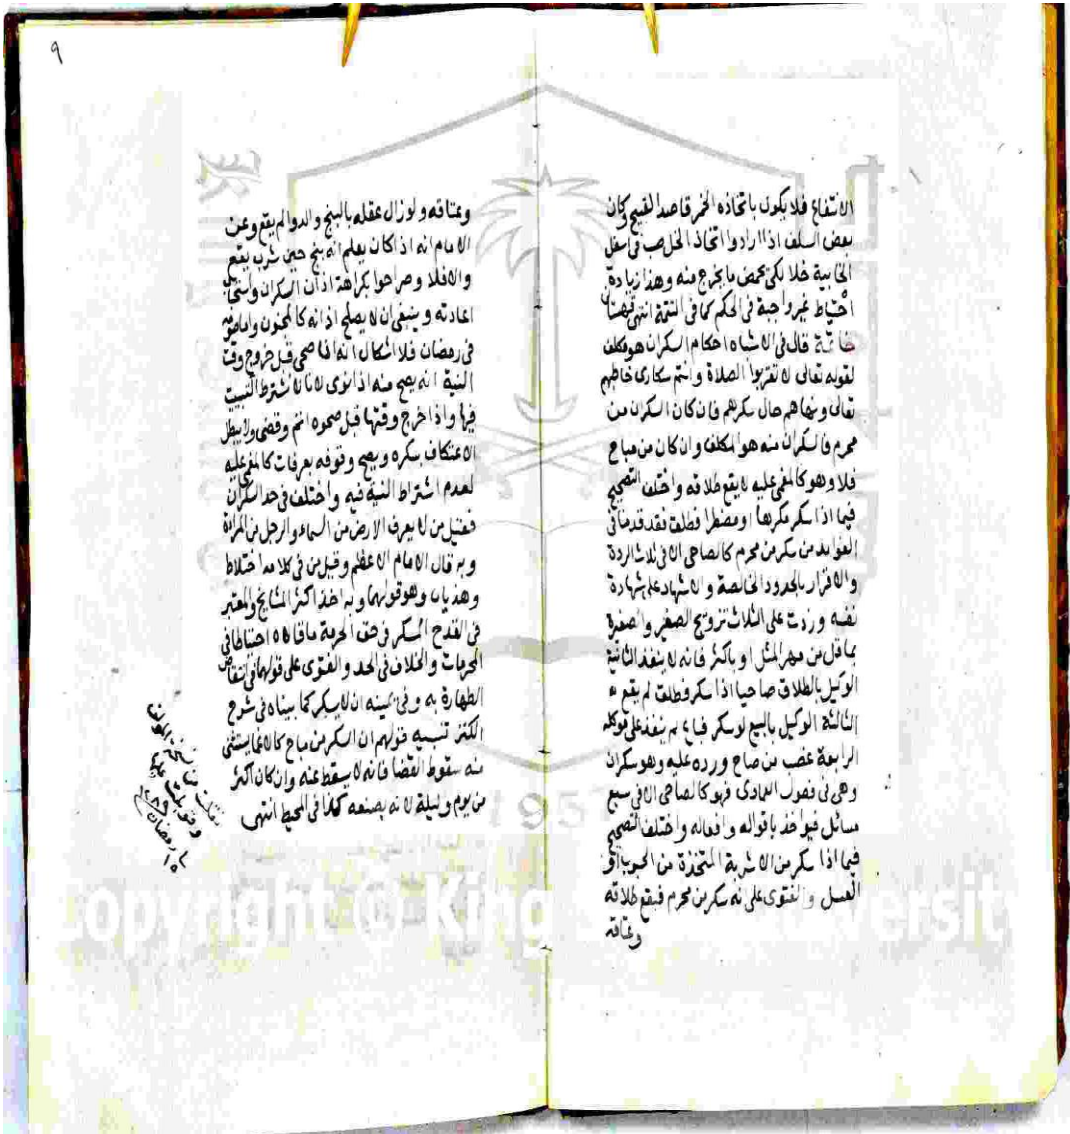 الانتفاع فلا يكون باتخاذه الخمر قاصدا القبيح وكان
بعض السلف اذا ارادوا اتخاذ الخل صب في اسفل
الخابية خلا لكى يحمض ما يخرج منه وهذا زيادة
احتياط غير واجبة في الحكم كما في التتمة انتهى قهستاني
خاتمة قال في الاشباه احكام السكران هو مكلف
لقوله تعالى لا تقربوا الصلاة وانتم سكارى خاطبهم
تعالى ونهاهم حال سكرهم فان كان السكران من
محرم فالسكران منه هو المكلف وان كان من مباح
فلا وهو كالمغمى عليه لا يقع طلاقه واختلف التصحيح
فيما اذا سكر مكرها او مضطرا فطلق فقد قدمنا في
الفوايد من سكر من محرم كالصاحى الا في ثلاث الردة
والاقرار بالحدود الخالصة والاشهاد على شهادة
نفسه وزدت على الثلاث تزويج الصغير والصغيرة
بما قل من مهر المثل او باكثر فانه لا ينفذ الثانية
الوكيل بالطلاق صاحيا اذا سكر فطلق لم يقع
الثالثة الوكيل بالبيع لو سكر فباع لم ينفذ على موكله
الرابعة غصب من صاح ورده عليه وهو سكران
وهى في فصول العمادى فهو كالصاحى الا في سبع
مسائل فيواخذ باقواله وافعاله واختلف التصحيح
فيما اذا سكر من الاشربة المتخذة من الحبوب او
العسل والفتوى على انه سكر من محرم فيقع طلاقه
وعتاقه
٩
وعتاقه ولو زال عقله بالبنج والدوا لم يقع وعن
الامام انه اذا كان يعلم انه بنج حين شرب يقع
والا فلا وصرحوا بكراهة اذان السكران واستحباب
اعادته وينبغى ان لا يصلح اذانه كالمجنون واما صومه
في رمضان فلا اشكال انه اذا صحى قبل خروج وقت
النية انه يصح منه اذا نوى لانا لا نشترط التبييت
فيها واذا خرج وقتها قبل صحوه اثم وقضى ولا يبطل
الاعتكاف بسكره ويصح وقوفه بعرفات كالمغمى عليه
لعدم اشتراط النية فيه واختلف في حد السكران
فقيل من لا يعرف الارض من السماء والرجل من المراة
وبه قال الامام الاعظم وقيل من في كلامه اختلاط
وهذيان وهو قولهما وبه اخذ اكثر المشايخ والمعتبر
في القدح المسكر في حق الحرمة ما قالاه احتياطا في
المحرمات والخلاف في الحد والفتوى على قولهما في انتقاض
الطهارة به وفي يمينه ان لا يسكر كما بيناه في شرح
الكنز تنبيه قولهم ان السكر من مباح كالاغما يستثنى
منه سقوط القضا فانه لا يسقط عنه وان كان اكثر
من يوم وليلة لانه بصنعه كذا في المحيط انتهى
نقلت من نسخة المولف
وقوبلت عليها
رمضان
١٥